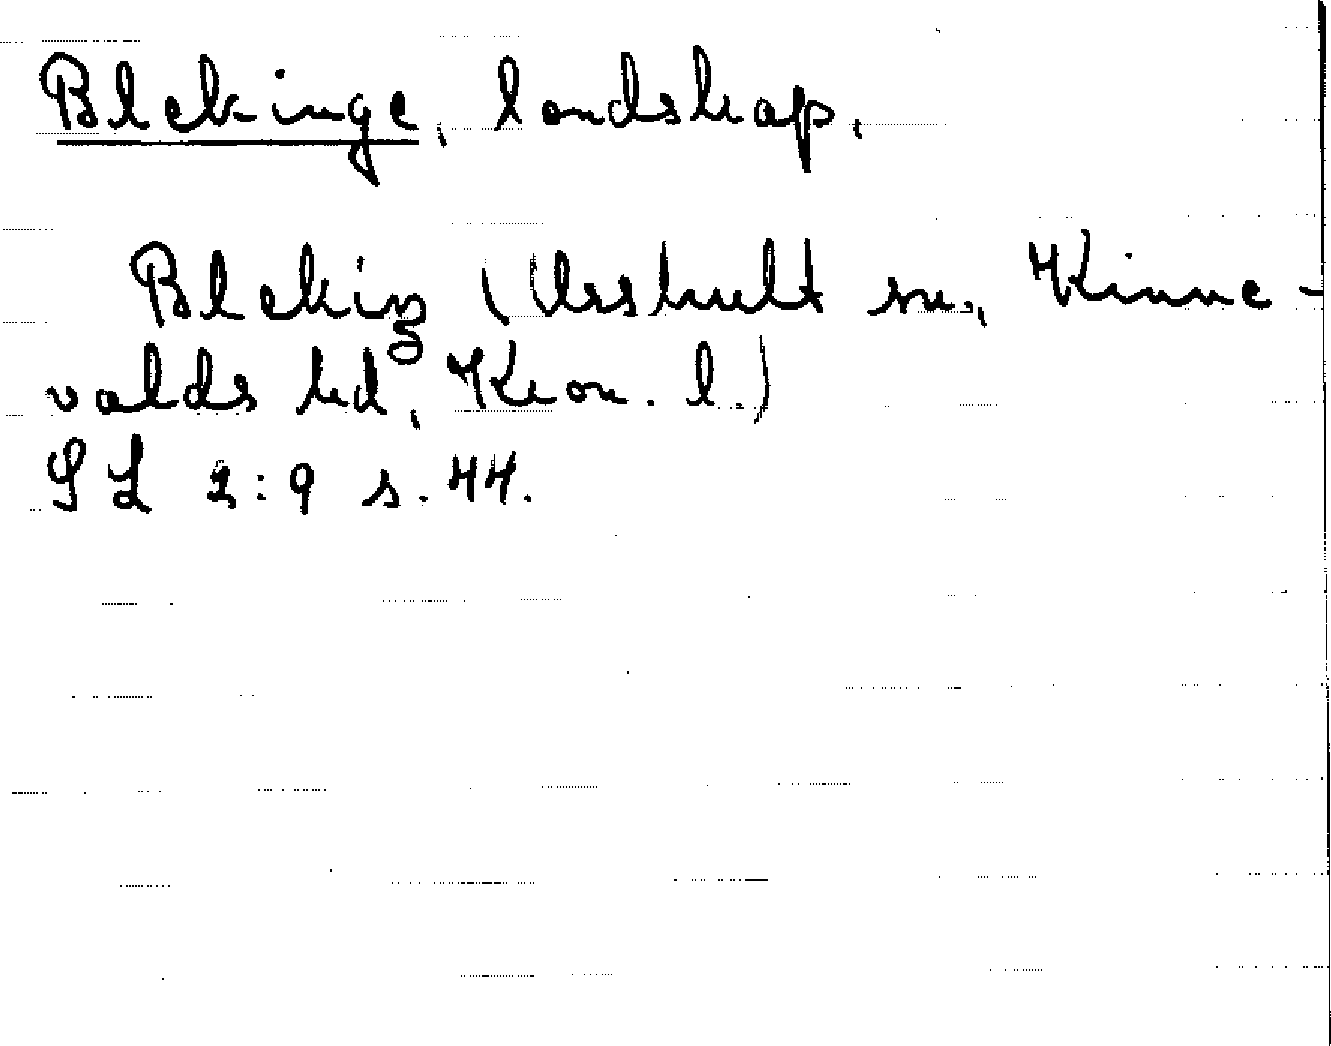 Blekinge, landskap.
Blekiŋ (Urshult sn, Kinne-
valds hd, Kron. l.)
SL 2:9 s. 44.